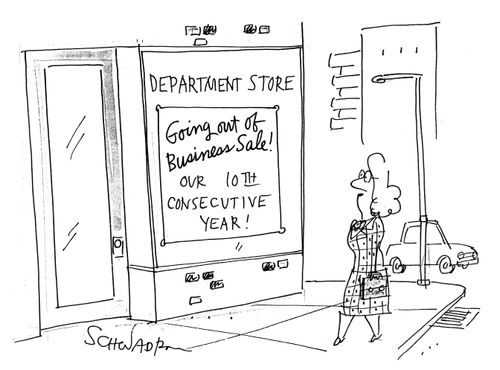 DEPARTMENT STORE
Going out of
Business Sale!
OUR 10TH
CONSECUTIVE
YEAR!
SCHWADRON